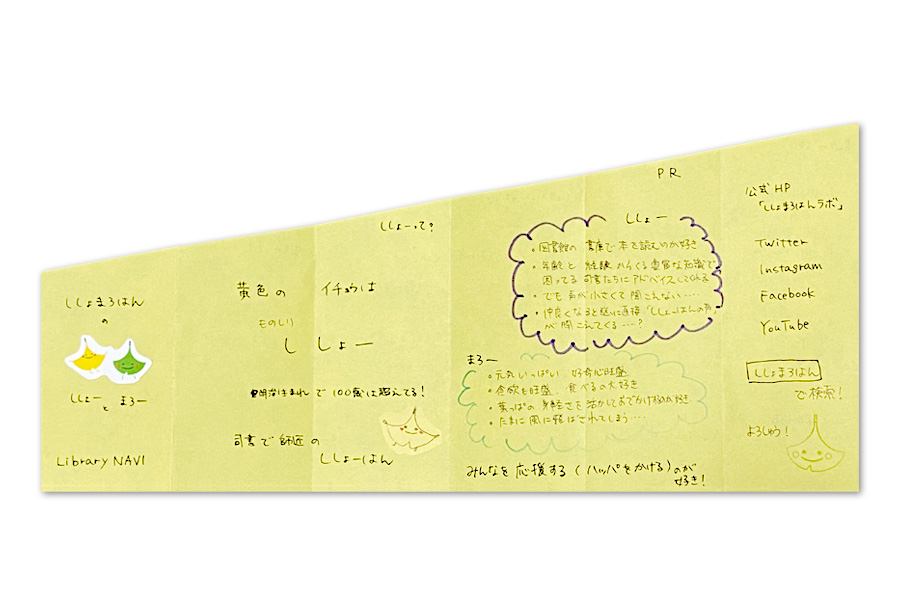 ししょまろはん
の
ししょー と まろー
Library NAVI
ししょーって?
黄色の イチョウは
ものしり
し しょー
明治生まれ で 100歳は超えてる!
司書で師匠の
ししょーはん
PR
ししょー
・図書館の 書庫で本を読むのが好き
・年齢と 経験からくる豊富な知識で
困ってる 司書たちにアドバイスしてくれる
・でも 声が小さくて 聞こえない……
・仲良くなると急に直接「ししょーはんの声」
が聞こえてくる……?
まろー
・元気いっぱい 好奇心旺盛
・食欲も旺盛 食べるの大好き
・葉っぱの 身軽さを活かしておでかけ
・たまに 風に飛ばされてしまう……
みんなを 応援する(ハッパをかける)のが
好き!
公式HP
「ししょまろはんラボ」
Twitter
Instagram
Facebook
YouTube
ししょまろはん
で検索!
よろしゅう!